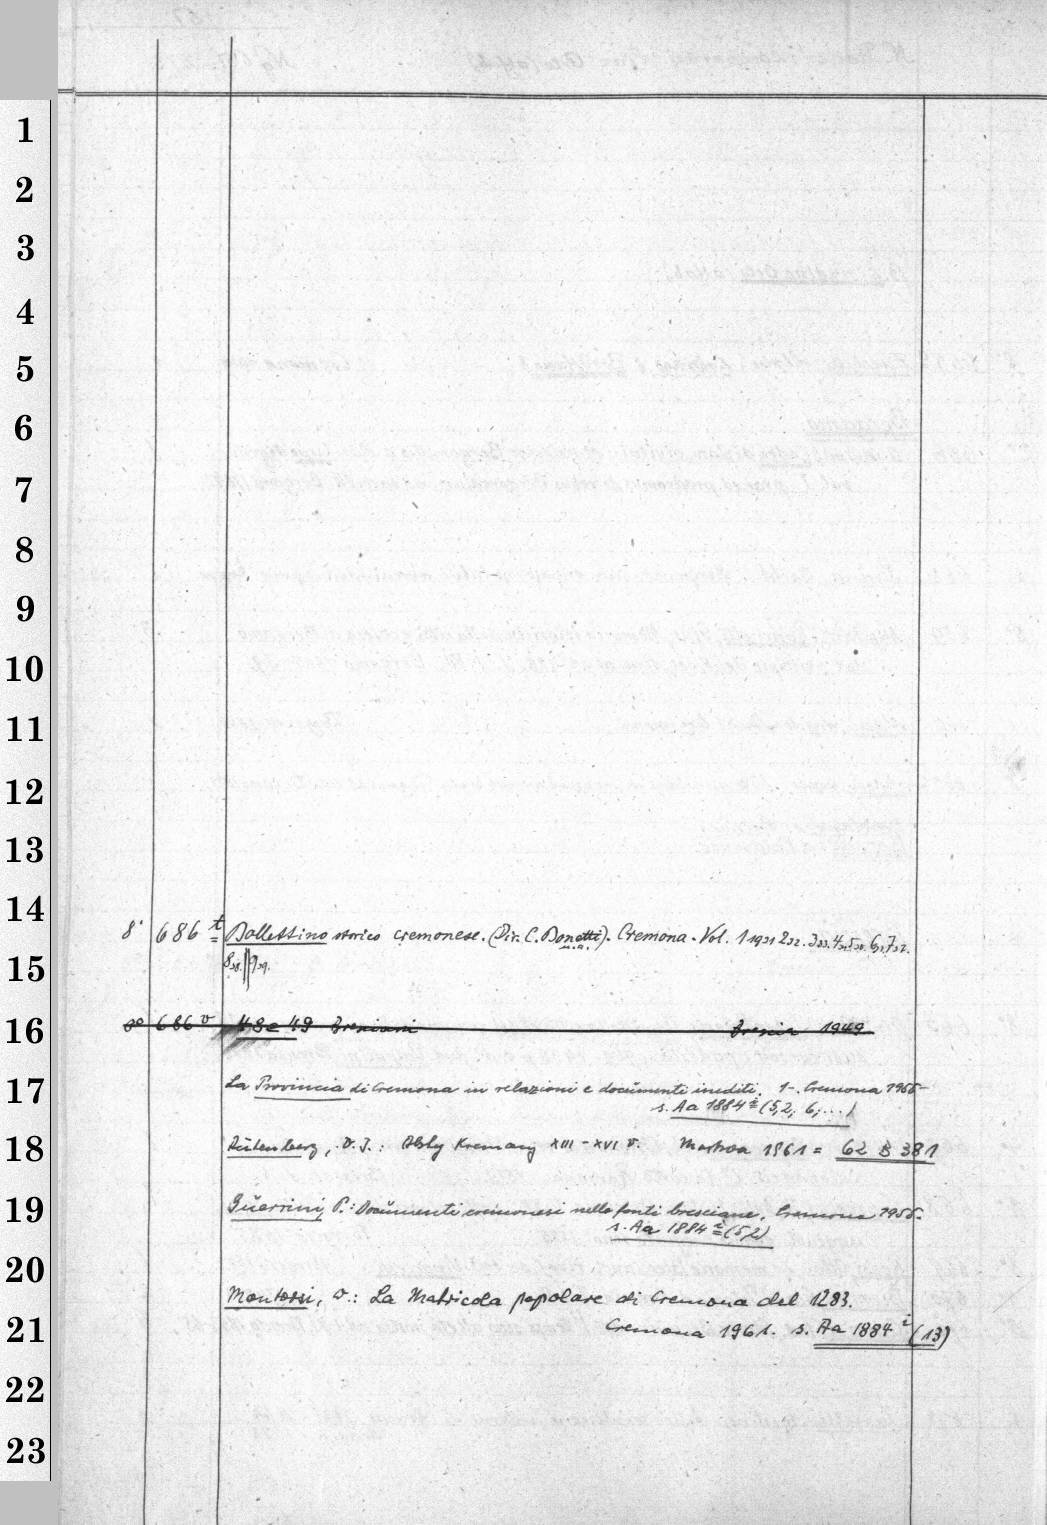 1
2
3
4
5
6
7
8
9
10
11
12
13
14
8° 686 t Bollettino storico cremonese. (Dir. C. Bonetti). Cremona. Vol. 1 1931 2 32. 3 33. 4 5 6 7
15
8 38. 9 39.
16
8° 686 v 48 e 49 Bresciani Brescia 1949
17
La Provincia di Cremona in relazioni e documenti inediti. 1-. Cremona 1955-
s. Aa 1884 i (5,2; 6,...)
18
Rutenberg, V. I.: XIII - XVI v. Moskva 1961 = 62 B 381
19
Guerrini, P.: Documenti cremonesi nelle fonti bresciane. Cremona 1955.
s. Aa 1884 i (5,2)
20
Montorsi, V.: La Matricola popolare di Cremona del 1283.
21
Cremona 1961. s. Aa 1884 i (13)
22
23